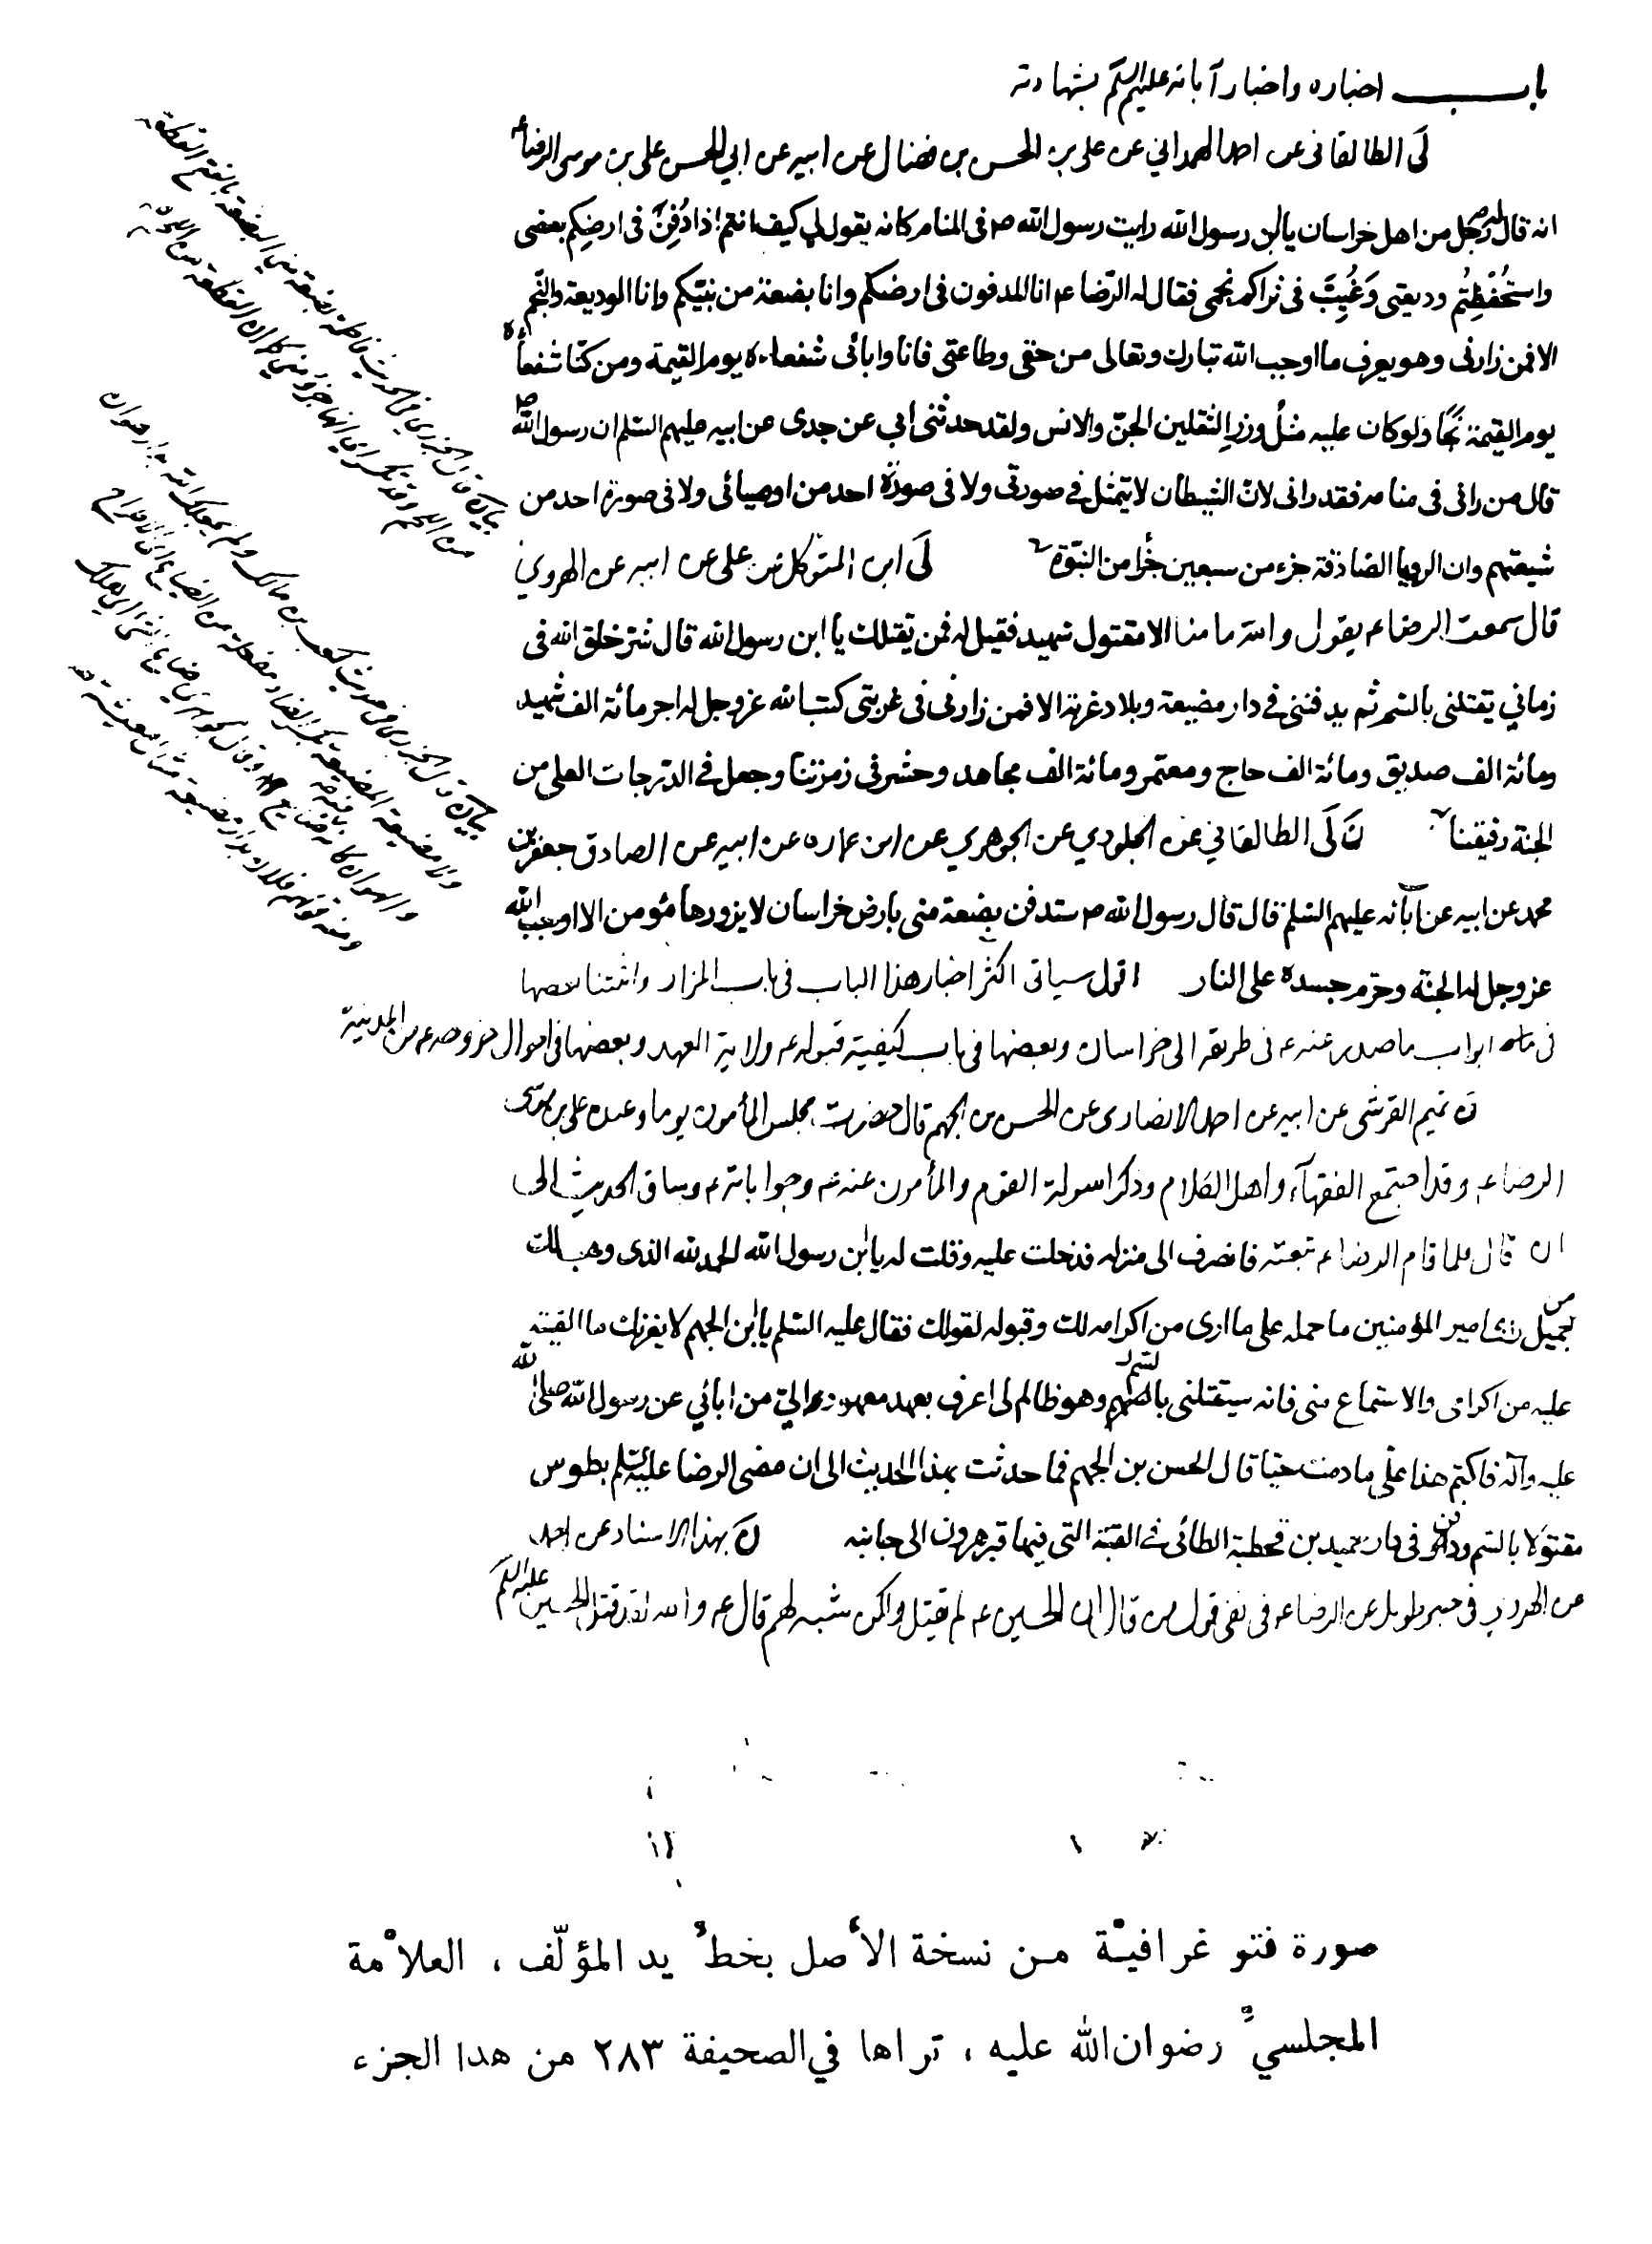 باب اخباره واخبار آبائه عليهم السلم بشهادته
لى الطالقانى عن احمد الهمداني عن على بن الحسن بن فضال عن ابيه عن ابي الحسن على بن موسى الرضا ع
انه قال له رجل من اهل خراسان يا ابن رسول الله رايت رسول الله ص فى المنام كانه يقول لي كيف انتم اذا دُفِنَ فى ارضكم بعضى
واستُحفِظتُم وديعتى وَغُيِبَّ فى ثراكم نجمى فقال له الرّضا ع انا المدفون فى ارضكم وانا بضعة من نبيّكم وانا الوديعة والنّجم
الا فمن زارنى وهو يعرف ما اوجب الله تبارك وتعالى من حقى وطاعتى فانا وابائى شفعاءه يوم القيمة ومن كنّا شفعاءه
يوم القيمة نجا ولو كان عليه مثلُ وزرِ الثقلين الجنّ والانس ولقد حدثنى ابى عن جدى عن ابيه عليهم السّلم ان رسول الله ص
قال من رانى فى منامه فقد رانى لانّ الشيطان لا يتمثل في صورتى ولا فى صورة احد من اوصيائى ولا فى صورة احد من
شيعتهم وان الرويا الصّادقة جزء من سبعين جزأ من النبّوة لى ابن المتوكل عن على عن ابيه عن الهروي
قال سمعت الرضا ع يقول والله ما منا الا مقتول شهيد فقيل له فمن يقتلك يا ابن رسول الله قال شر خلق الله فى
زماني يقتلنى بالسّم ثم يدفننى في دار مضيعة وبلاد غربة الا فمن زارنى فى غربتى كتب الله عز وجل له اجر مائة الف شهيد
ومائة الف صديق ومائة الف حاج ومعتمر ومائة الف مجاهد وحشر فى زمرتنا وجعل في الدّرجات العلى من
الجنة رفيقنا ن لى الطالقاني عن الجلودي عن الجوهري عن ابن عماره عن ابيه عن الصادق جعفر بن
محمد عن ابيه عن آبائه عليهم السّلم قال قال رسول الله ص ستدفن بضعة منى بارض خراسان لا يزورها مؤمن الا اوجب الله
عز وجل له الجنة وحرّم جسده على النار اقول سياتى اكثر اخبار هذا الباب فى باب المزار واثبتنا بعضها
فى ابواب ما صدر عنه ع فى طريقه الى خراسان وبعضها فى باب كيفية قبوله ع ولاية العهد وبعضها فى احوال خروجه ع من المدينة
ن تميم القرشى عن ابيه عن احمد الانصارى عن الحسن بن الجهم قال حضرت مجلس المأمون يوما وعنده على بن موسى
الرضا ع وقد اجتمع الفقهآء واهل الكلام وذكر اسولة القوم والمأمون عنه ع وجواباته ع وساق الحديث الى
ان قال فلما قام الرضا ع تبعته فانصرف الى منزله فدخلت عليه وقلت له يا ابن رسول الله الحمد لله الذى وهب لك
من جميل رأى امير المؤمنين ما حمله على ما ارى من اكرامه لك وقبوله لقولك فقال عليه السّلم يا ابن الجهم لا يغرنك ما الفيته
عليه من اكرامى والاستماع منى فانه سيقتلنى بالسّم وهو ظالم لى اعرف بعهد معهود الىّ من ابائي عن رسول الله صلى الله
عليه وآله فاكتم هذا علّى ما دمت حيّا قال الحسن بن الجهم فما حدثت بهذا الحديث الى ان مضى الرضا عليه السّلم بطوس
مقتولا بالسّم ودفن فى دار حميد بن قحطبة الطائى في القبة التى فيها قبر هرون الى جانبه ن بهذا الاسناد عن احمد
عن الهروى فى خبر طويل عن الرضا ع فى نفى قول من قال ان الحسين ع لم يقتل ولكن شبه لهم قال ع والله لقد قتل الحسين عليه السلم
صورة فتوغرافيّة من نسخة الأصل بخطّ يد المؤلّف ، العلاّمة
المجلسيّ رضوان الله عليه ، تراها في الصحيفة ٢٨٣ من هدا الجزء